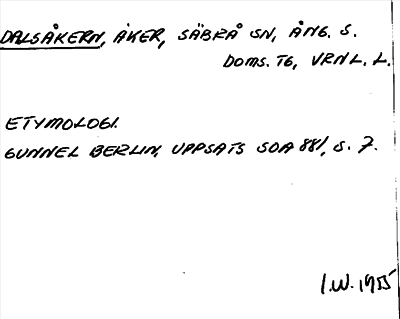 DALSÅKERN, ÅKER, SÄBRÅ SN, ÅNG. S.
DOMS. TG, VRNL. L.
ETYMOLOGI.
GUNNEL BERLIN, UPPSATS SOA 881, S. 7.
I.W. 1955